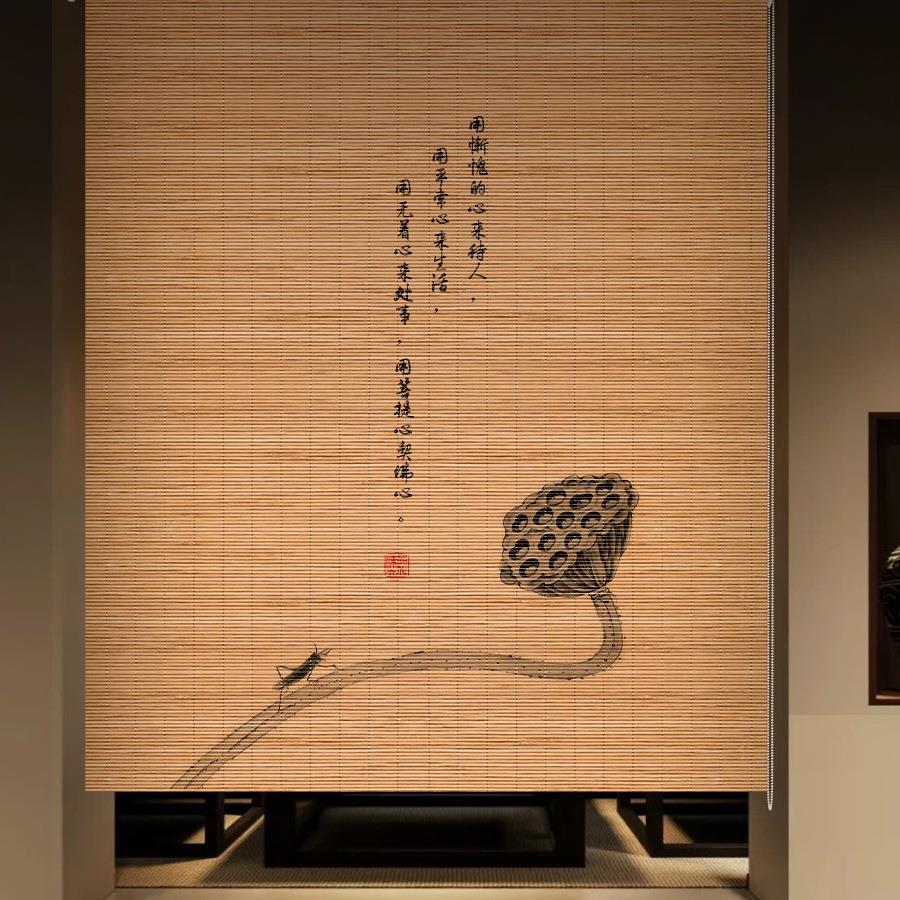 用惭愧的心来待人，
用平常心来生活，
用无着心来处事，用菩提心契佛心。